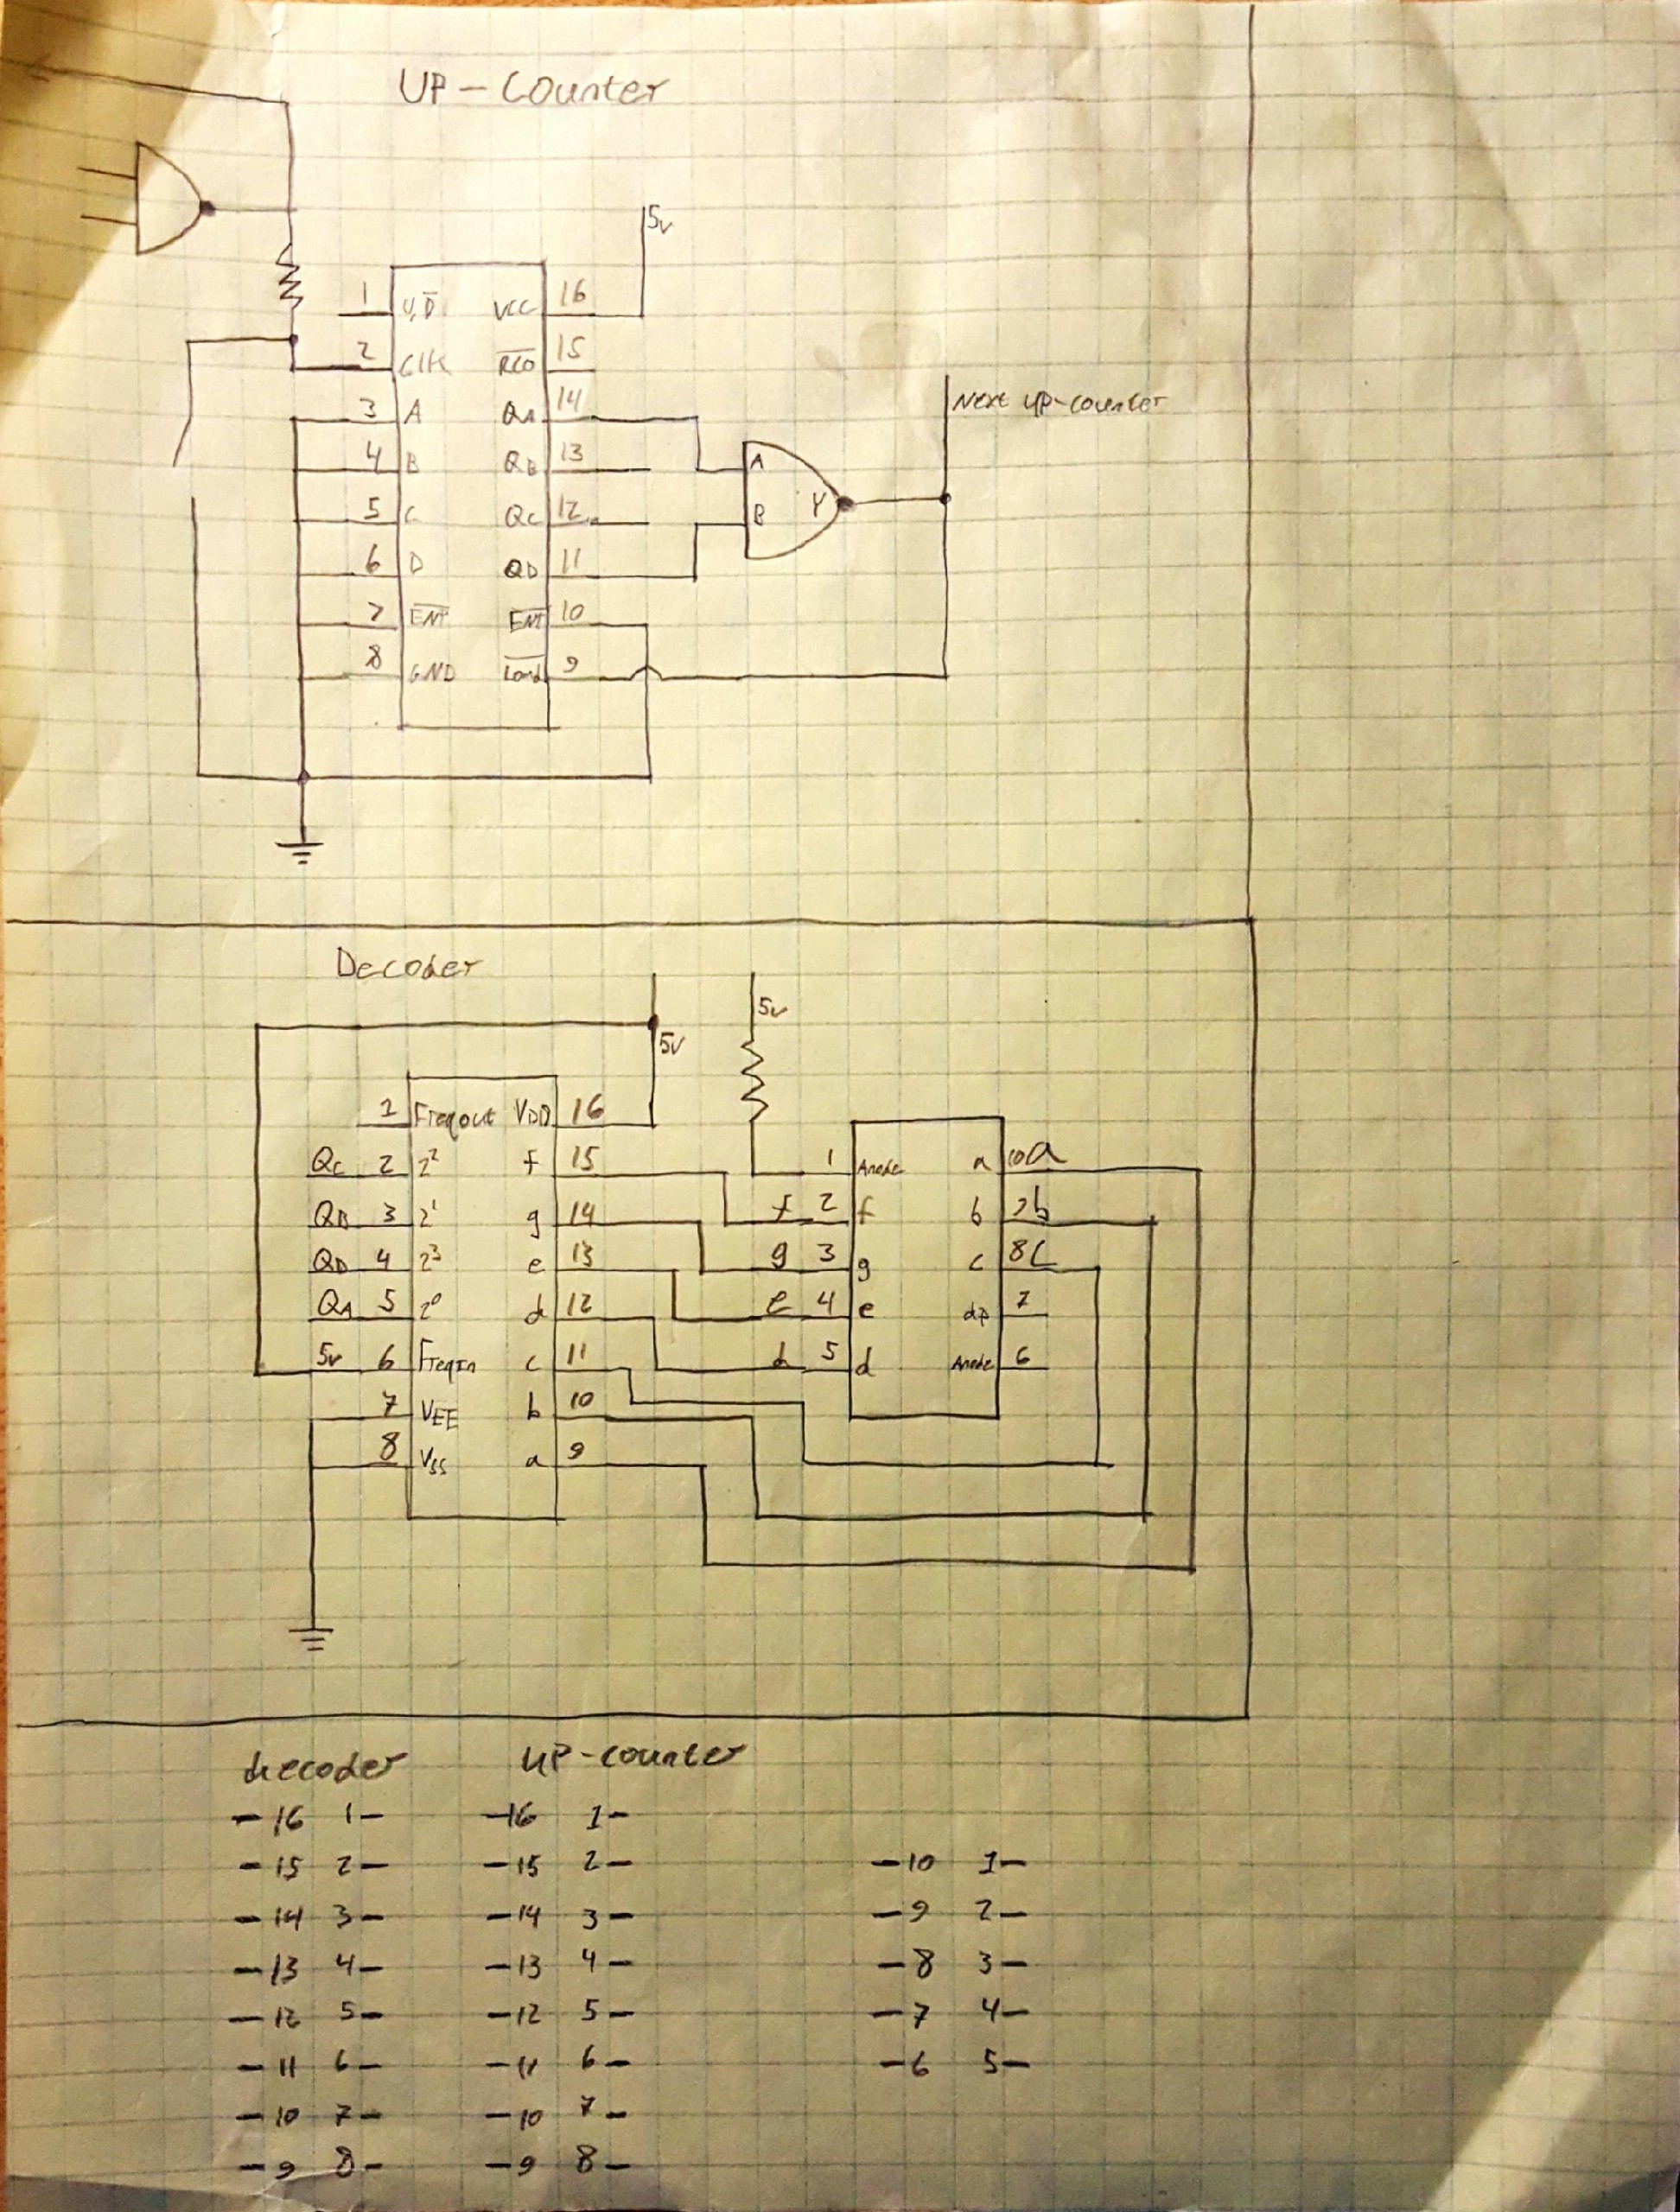 UP-Counter
5v
1 U/D̅ VCC 16
2 Clk R̅C̅O̅ 15
3 A QA 14
4 B QB 13
5 C QC 12
6 D QD 11
7 E̅N̅T̅ E̅N̅T̅ 10
8 GND L̅o̅a̅d̅ 9
A
B Y
Next up-counter
Decoder
5v
5v
1 Freqout VDD 16
Qc 2 2² f 15
QB 3 2¹ g 14
QD 4 2³ e 13
QA 5 2⁰ d 12
5v 6 FreqIn c 11
7 VEE b 10
8 VSS a 9
1 Anode a 10 a
f 2 f b 9 b
g 3 g c 8 C
e 4 e dp 7
d 5 d Anode 6
decoder UP-counter
-16 1- -16 1-
-15 2- -15 2- -10 1-
-14 3- -14 3- -9 2-
-13 4- -13 4- -8 3-
-12 5- -12 5- -7 4-
-11 6- -11 6- -6 5-
-10 7- -10 7-
-9 8- -9 8-